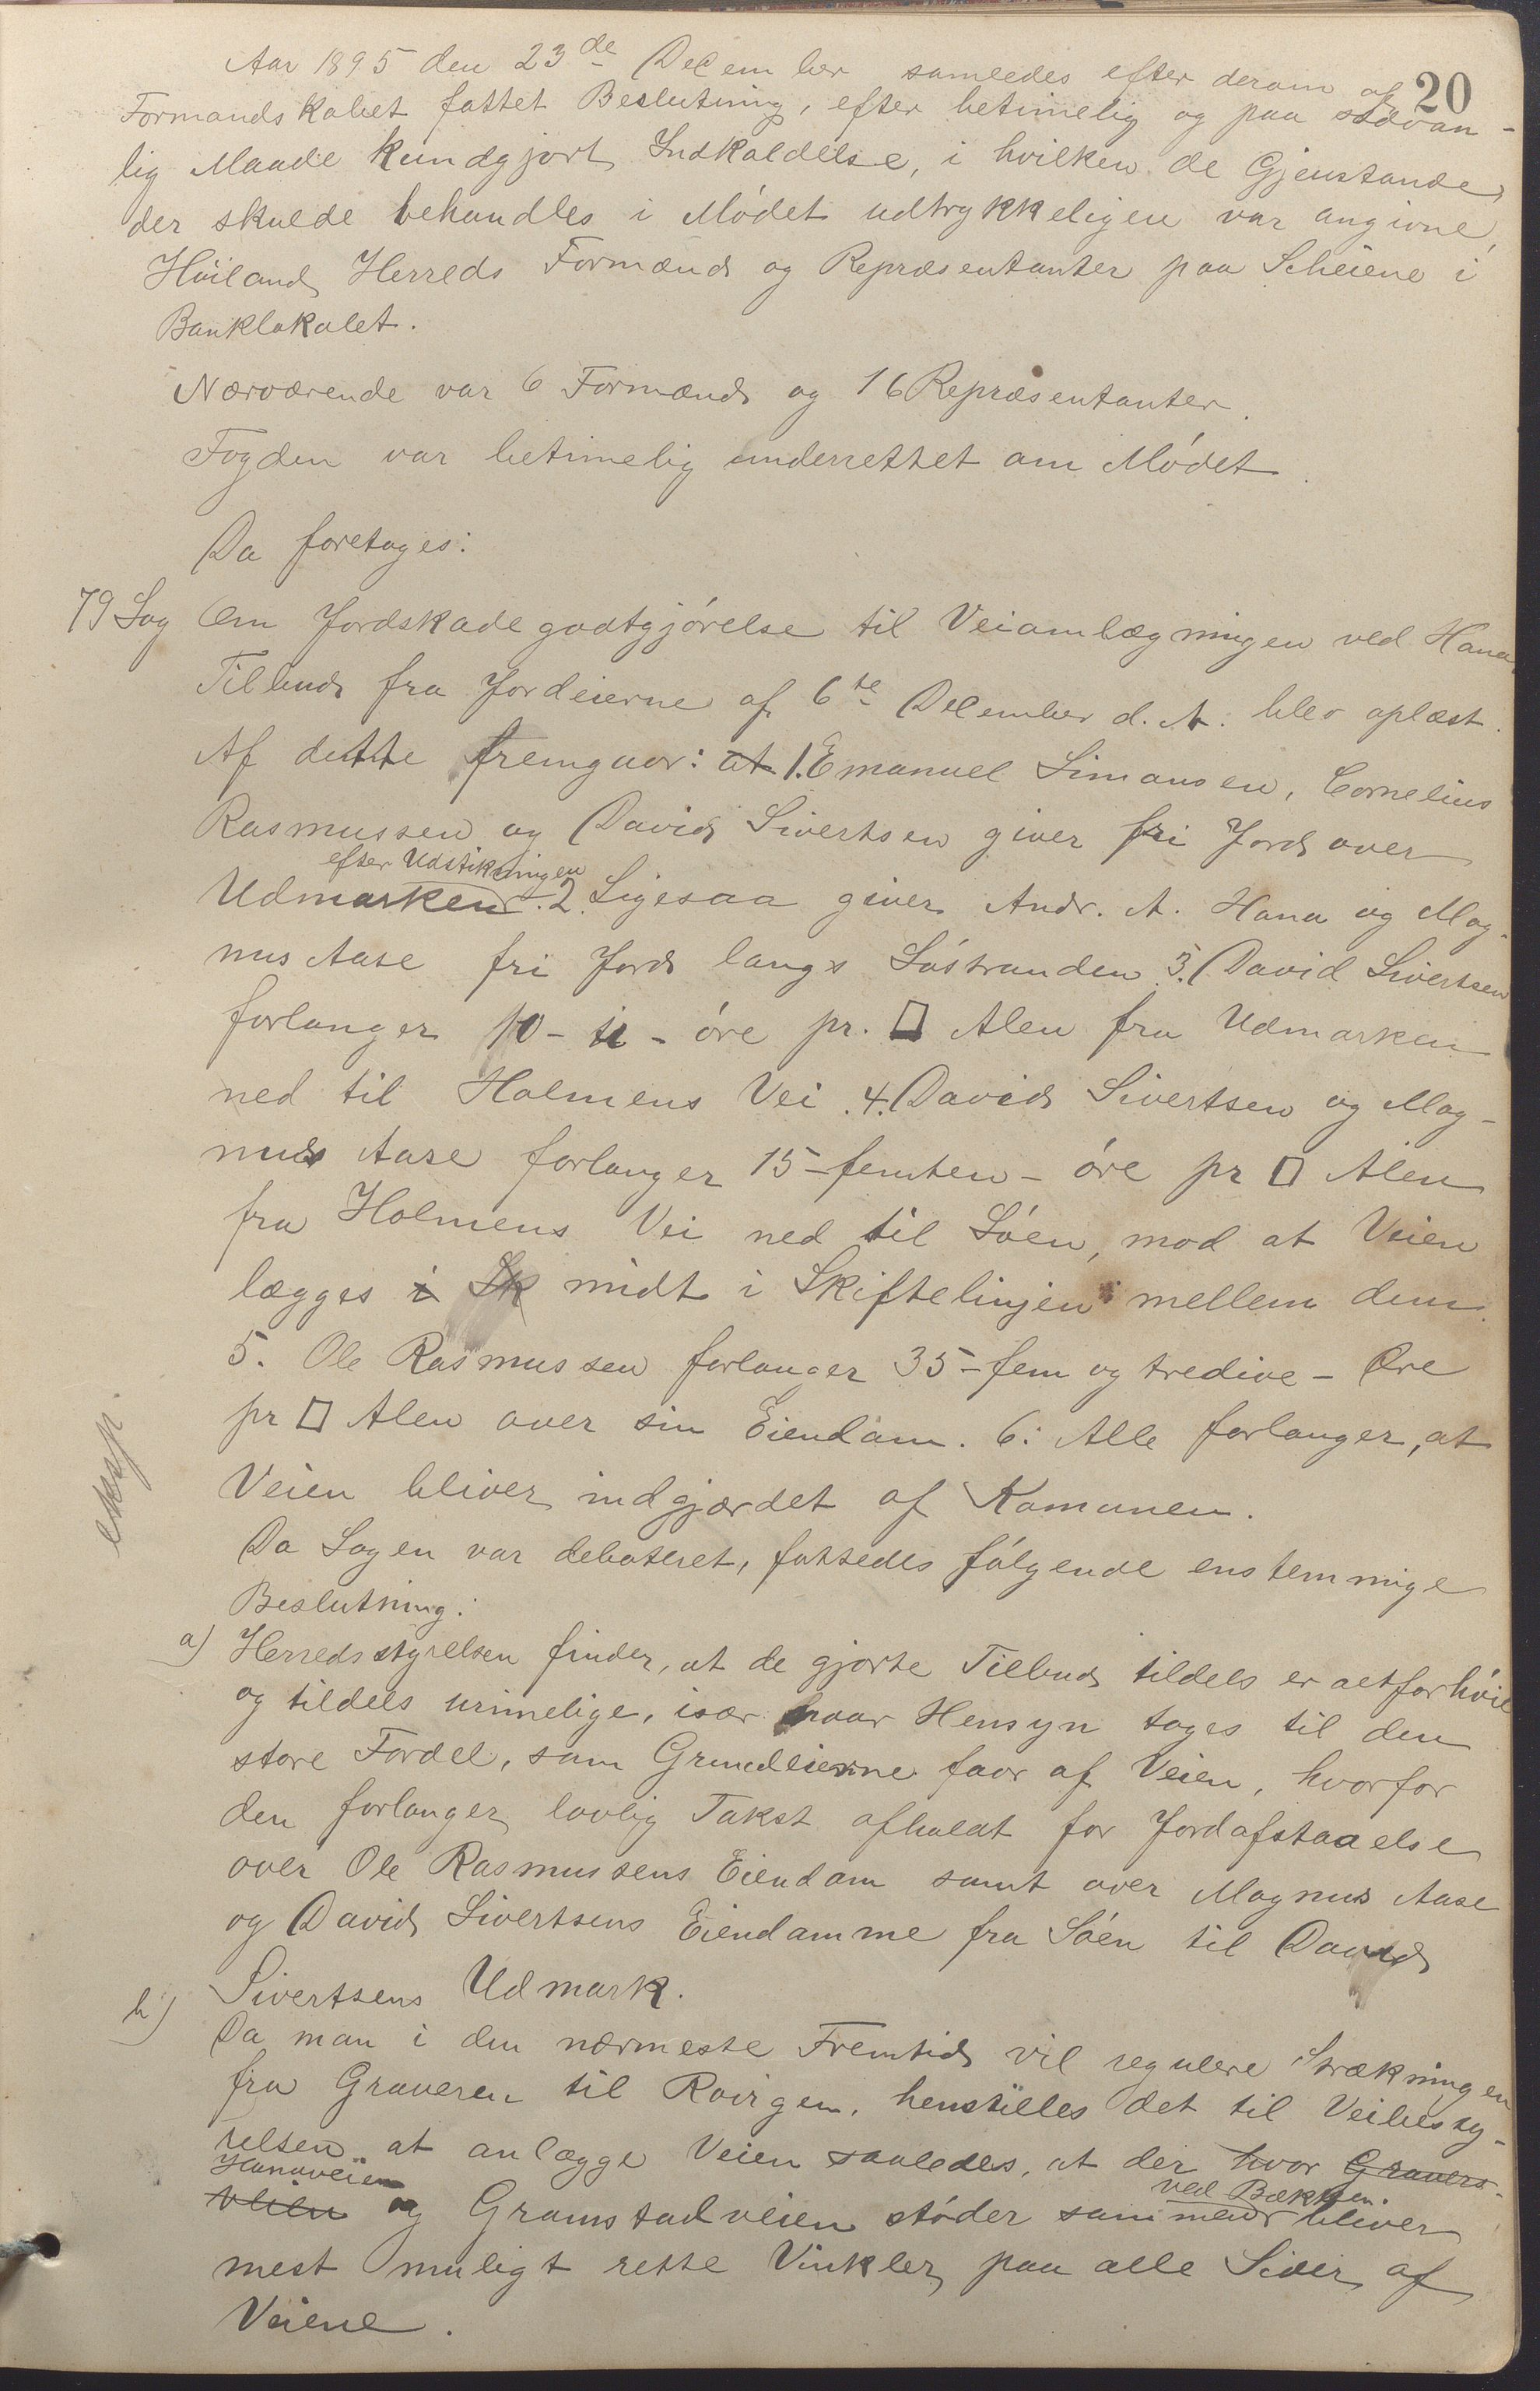 20
Aar 1895 den 23de December samledes efter derom af
Formandskabet fattet Beslutning, efter betimelig og paa sedvan-
lig Maade kundgjort Indkaldelse, i hvilken de Gjenstande,
der skulde behandles i Mødet udtrykkeligen var angivne,
Høiland Herreds Formænd og Repræsentanter paa Scheiene i
Banklokalet.
Nærværende var 6 Formænd og 16 Repræsentanter.
Fogden var betimelig underrettet om Mødet.
Da foretoges:
79 Sag Om Jordskadegodtgjørelse til Veiomlægningen ved Hana.
Tilbud fra Jordeierne af 6te December d. A. blev oplæst.
Af dette fremgaar: at 1. Emanuel Simonsen, Cornelius
Rasmussen og David Sivertsen giver fri Jord over
efter Udstikningen
Udmarken. 2. Ligesaa giver Andr. A. Hana og Mag-
nus Aase fri Jord langs Søstranden 3. David Sivertsen
forlanger 10 - ti - øre pr. □ Alen fra Udmarken
ned til Holmens Vei. 4. David Sivertsen og Mag-
nus Aase forlanger 15 - femten - øre pr □ Alen
fra Holmens Vei ned til Søen, mod at Veien
lægges i Sk midt i Skiftelinjen mellem dem.
5. Ole Rasmussen forlanger 35 - fem og tredive - Øre
pr □ Alen over sin Eiendom. 6: Alle forlanger, at
Veien bliver indgjærdet af Komunen.
eksp.
Da Sagen var debateret, fattedes følgende enstemmige
Beslutning:
a) Herredsstyrelsen finder, at de gjorte Tilbud tildels er altfor høie
og tildels urimelige, især naar Hensyn tages til den
store Fordel, som Grundeierne faar af Veien, hvorfor
den forlanger lovlig Takst afholdt for Jordafstaaelse
over Ole Rasmussens Eiendom samt over Magnus Aase
og David Sivertsens Eiendomme fra Søen til David
Sivertsens Udmark.
b) Da man i den nærmeste Fremtid vil regulere Strækningen
fra Graveren til Rovigen, henstilles det til Veibesty-
relsen at anlægge Veien saaledes, at der hvor Gravers-
Hanaveien
veien og Gramstadveien støder sammen bliver
ved Bækken.
mest muligt rette Vinkler paa alle Sider af
Veiene.